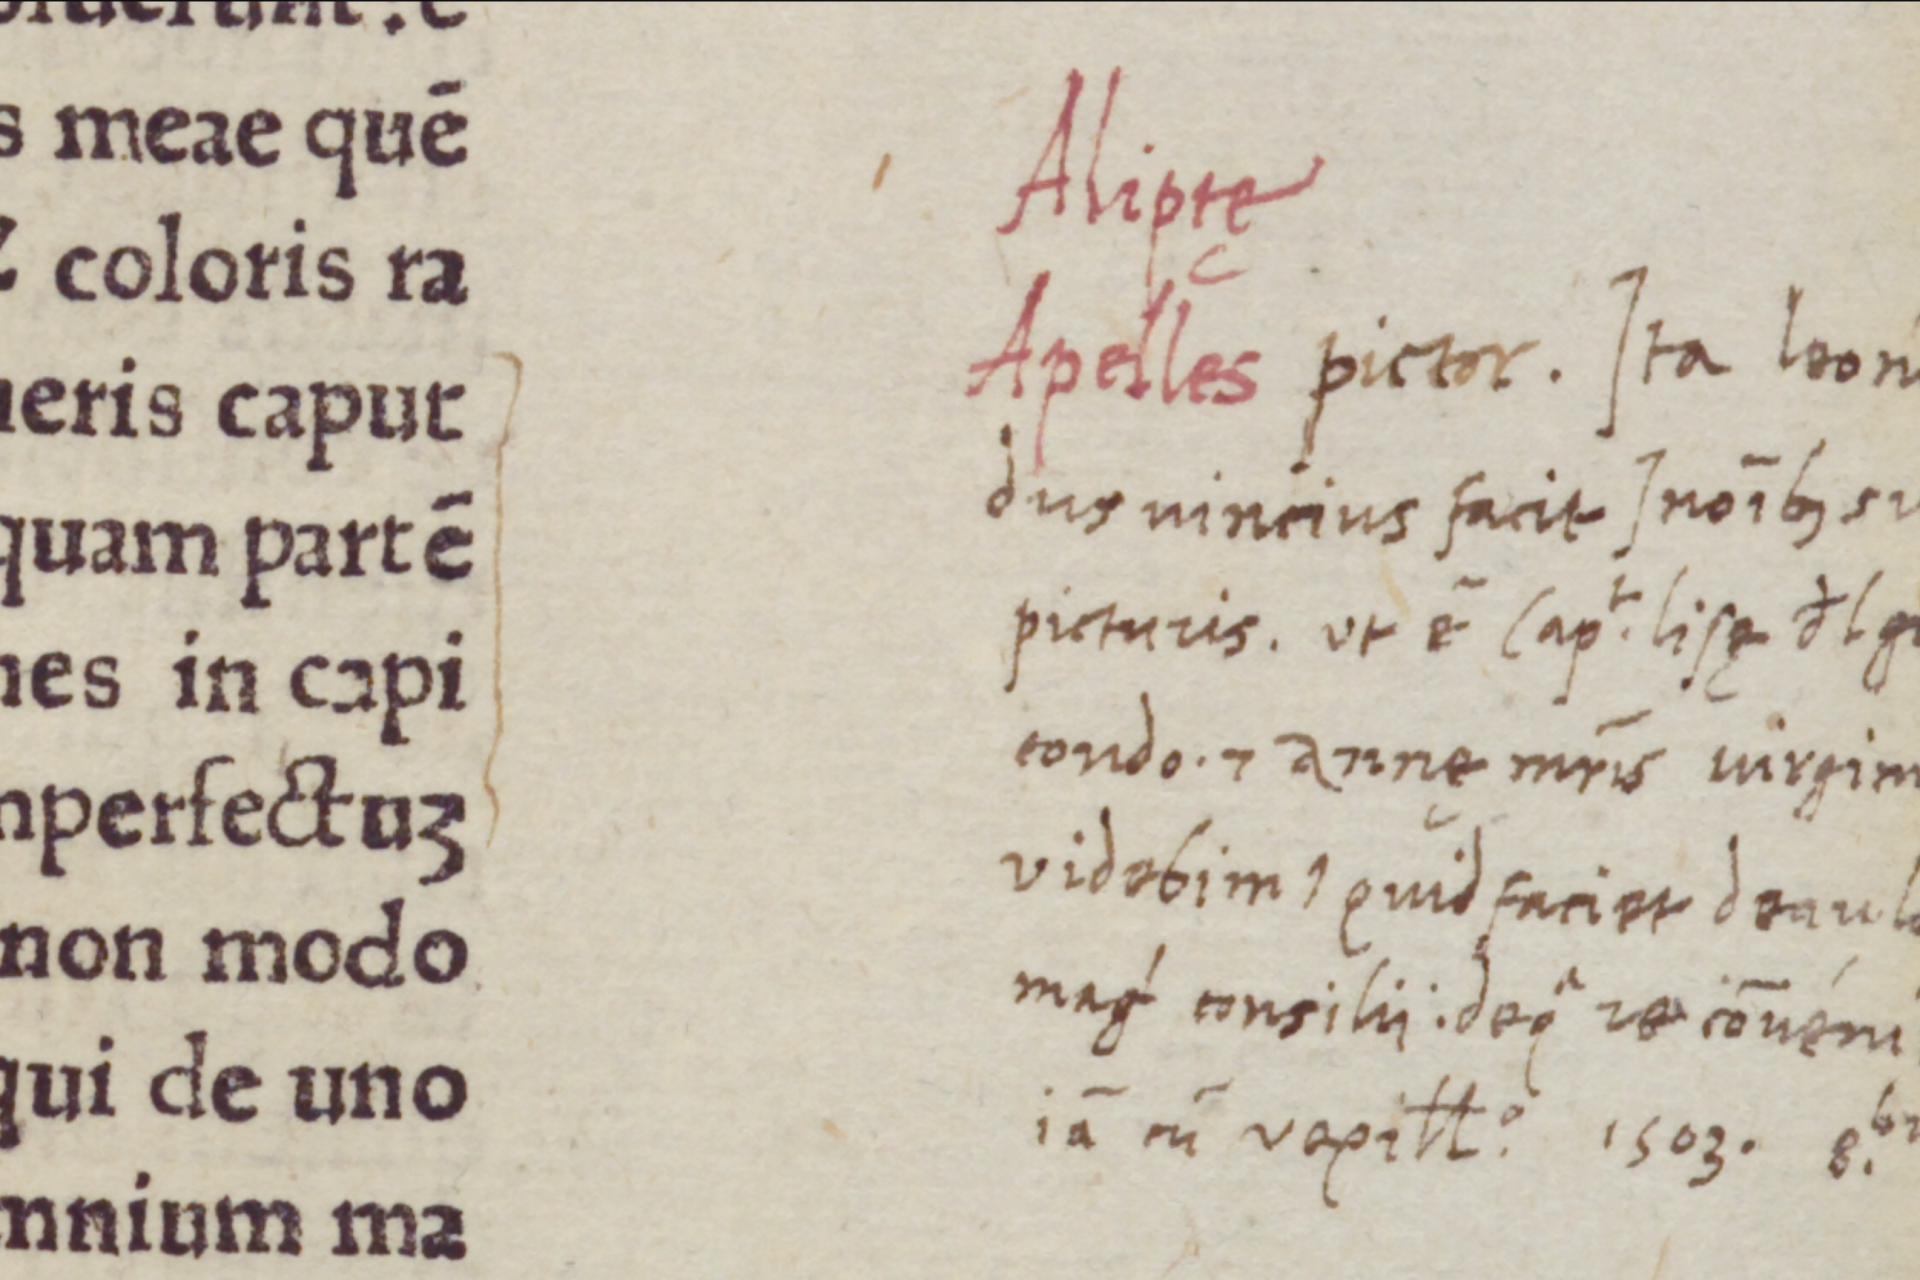 s meae quē
coloris ra
ueris caput
quam partē
nes in capi
nperfectuʒ
non modo
qui de uno
mnium ma
Alipte
Apelles pictor. Ita leon
dus uincius facit In oībꝫ su
picturis. ut ē Cap.t lisę del gi
condo. ⁊ Annę mr̄is uirgin
videbimꝰ quid faciet de aula
mag consilii: de qa re cōuenı
iā cū vexillo 1503. 8.br